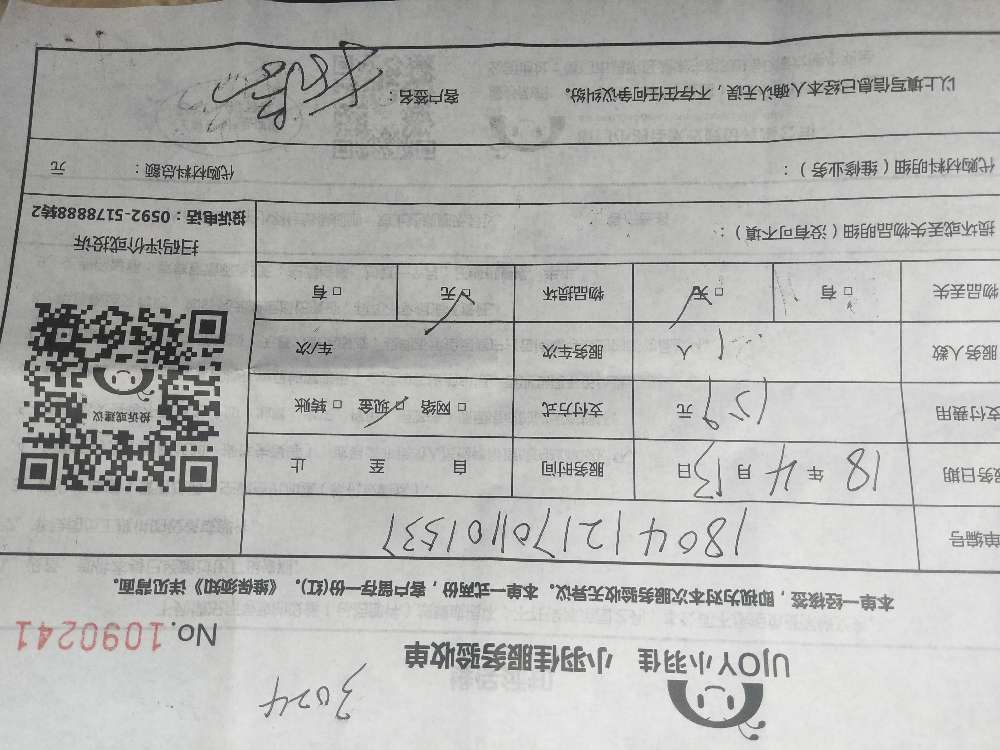 3024
UJOY小羽佳 小羽佳服务验收单
No.1090241
本单一经核签，即视为对本次服务验收无异议。本单一式两份，客户留存一份(红)。《维保须知》详见背面。
单编号 1804121701101537
服务日期 18 年 4 月 13 日 服务时间 自 至 止
支付费用 元 支付方式 □ 网络 □ 现金 □ 转账
服务人数 1 人 服务车次 车/次
物品丢失 □ 有 □ 无 物品损坏 □ 无 □ 有
投诉或建议
扫码评价或投诉
投诉电话：0592-5178888转2
损坏或丢失物品明细（没有可不填）：
代购材料明细（维修业务）： 代购材料总额： 元
以上填写信息已经本人确认无误，不存在任何争议纠纷。 客户签名：